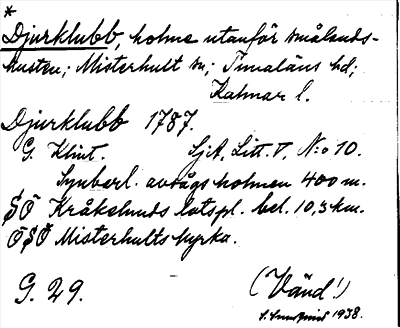 *
Djurklubb, holme utanför smålands-
kusten; Misterhult sn; Tunaläns hd;
Kalmar l.
Djurklubb 1787.
G. Klint. SjA, Litt. V, N:o 10.
Synberl. avvägs holmen 400 m.
SÖ Kråkelunds lotspl. bel. 10,3 km.
ÖSÖ Misterhults kyrka.
G. 29. (Vänd!)
1938.